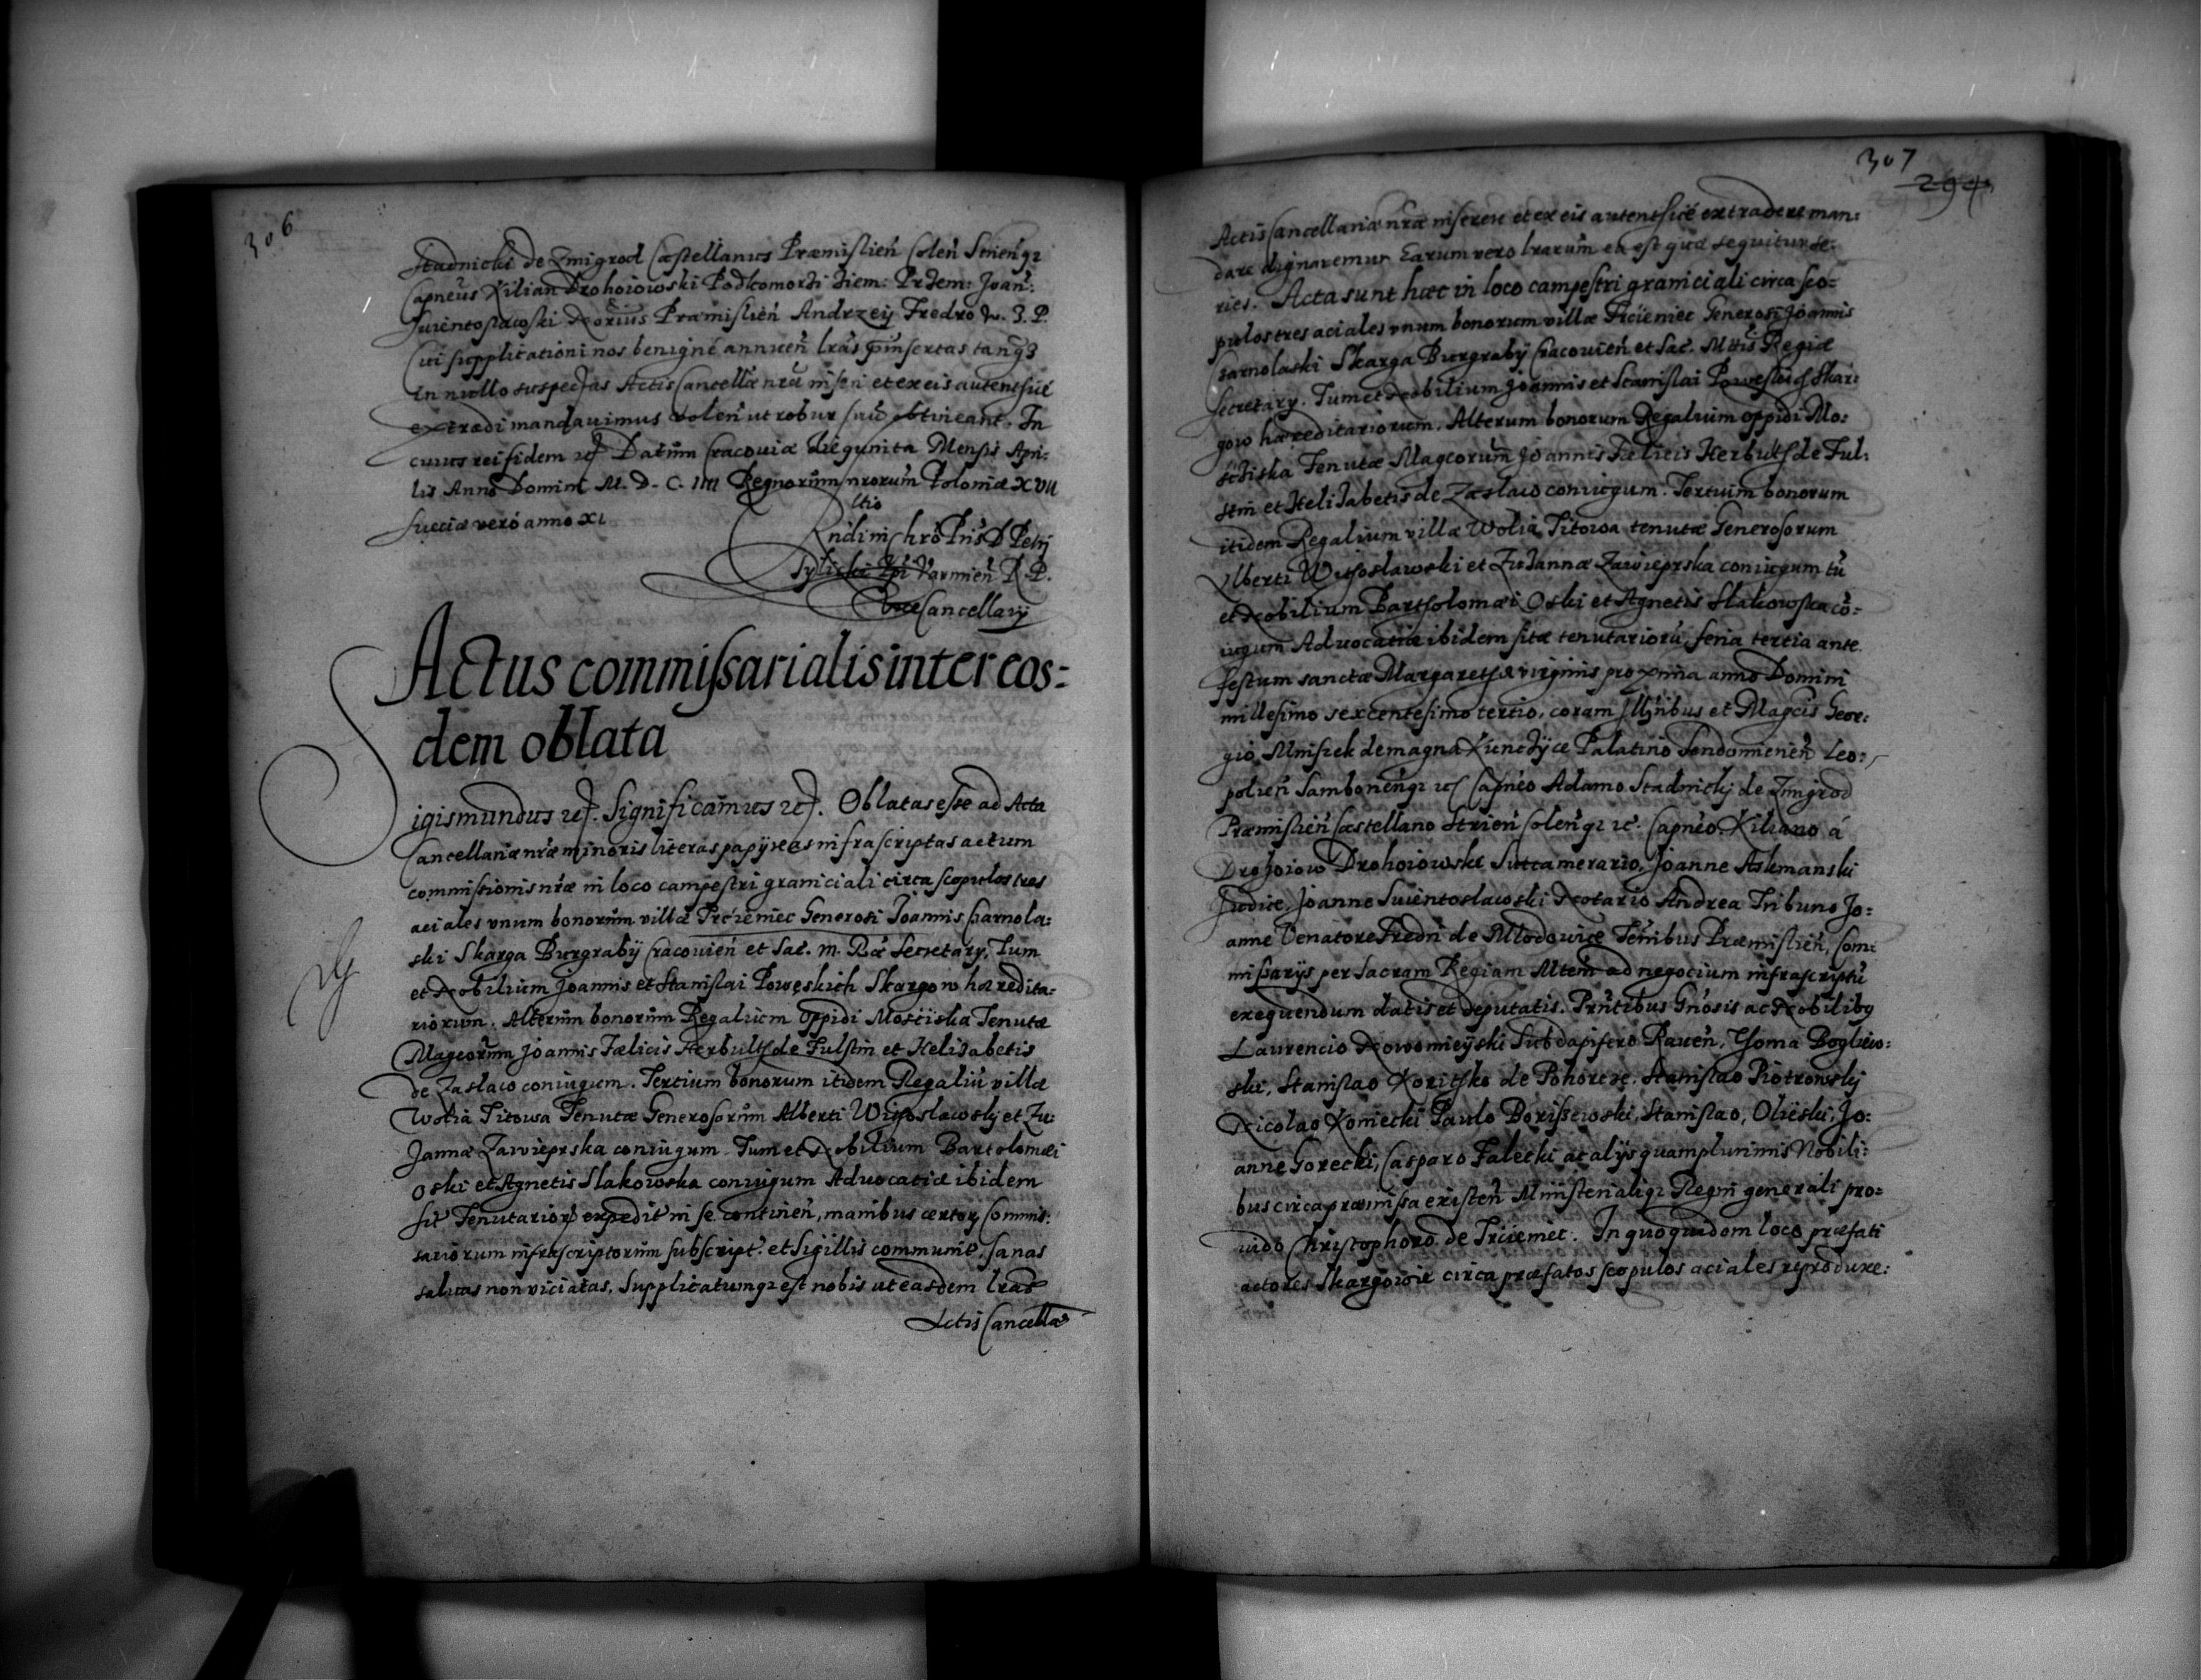 306
Stadnicki de Zmigrod Castellanus Præmislień Coleń Strieńqz
Capneus Kilian Drohoiowski Podkomorzi Ziem: Przem: Joan:
Swientoslawski Notarius Præmislień Andrzey Fredro W. Z. P.
Cui supplicationi nos benigné annueń lras
in nullo suspectas Actis Cancellæ nræ inseri et ex eis autenthicé
extradi mandavimus Voleń ut robur suū obtineant. In
cuius rei fidem Datum Cracoviæ Mensis Apri:
lis Anno Domini M. D. C. IIII Regnorum nrorum Poloniæ XVII
Sueciæ veró anno XI
Rndi in Chrō Pris D Petri
Tylicki Epi Varmień R. P.
Vice Cancellarij
Actus commissarialis inter eos=
dem oblata
Sigismundus Significamus Oblatas esse ad Acta
Cancellariæ nræ minoris literas papyreas infrascriptas actum
commissionis nræ in loco campestri graniciali circa scopulos tres
aciales vnum bonorum villæ Trcieniec Generosi Joannis Czarnola:
ski Skarga Burgrabÿ Cracovień et Sac. M. Ræ Secretarÿ, Tum
et Nobilium Joannis et Stanislai Powęskich Skargow hæredita:
riorum. Alterum bonorum Regalium Oppidi Mosciska Tenutæ
Magcorum Joannis Fælicis Herbulth de Fulstin et Helizabetis
de Zaslaw coniugum. Tertium bonorum itidem Regaliū villæ
Wolia Titowa Tenutæ Generosorum Alberti Witoslawskj et Zu:
zannæ Zawieprska coniugum Tum et Nobilium Bartolomæi
Oski et Agnetis Slakowska coniugum Advocatiæ ibidem
sit Tenutarior expedit in se contineń, manibus certor Commis:
sariorum infrascriptorum subscript: et Sigillis communit, sanas
salvas non viciatas, Supplicatumqz est nobis ut easdem lras
Actis Cancellæ
307
294
Actis Cancellariæ nræ inserere et ex eis autenthicé extradere man:
dare dignaremur Earum vero lrarum ea est quæ sequitur se:
ries. Acta sunt hæc in loco campestri graniciali circa sco=
pulos tres aciales vnum bonorum villæ Trcieniec Generosi Joannis
Czarnolaski Skarga Burgrabÿ Cracovień et Sac. Mttis Regiæ
Secretarÿ. Tum et Nobilium Joannis et Stanislai Poweskich Skar:
gow hæreditariorum. Alterum bonorum Regalium oppidi Mo:
sciska Tenutæ Magcorum Joannis Fælicis Herbulth de Ful:
stin et Helizabetis de Zaslaw coniugum. Tertium bonorum
itidem Regalium villæ Wolia Titowa tenutæ Generosorum
Alberti Witoslawski et Zuzannæ Zawieprska coniugum tū
et Nobilium Bartholomæi Oski et Agnetis Slakowska cō=
iugum Advocatiæ ibidem sitæ tenutariorū, feria tertia ante
festum sanctæ Margarethæ virginis proxima anno Domini
millesimo sexcentesimo tertio, coram Illribus et Magcis Geor:
gio Mniszek de magna Kunczÿce Palatino Sendomirień Leo:
polień Samborieńqz Capneo Adamo Stadnickj de Zmigrod
Præmislień Castellano Strień Coleńqz Capneo. Kiliano á
Drohoiow Drohoiowski Succamerario, Joanne Askmanski
Judice, Joanne Swientoslawski Notario Andrea Tribuno Jo:
anne Venatore Fredri de Mlodowice Terribus Præmislień, Com:
missarÿs per Sacram Regiam Mtem ad negocium infrascriptū
exequendum datis et deputatis. Prntibus Gnosis ac Nobilibq
Laurencio Nowomieÿski Subdapifero Raveń, Thoma Boglew:
ski, Stanislao Koritsko de Pohorcze. Stanislao Piotrowskj
Nicolao Koniecki Paulo Borissewski, Stanislao, Olieski, Jo:
anne Gorecki, Casparo Falecki ac alÿs quamplurimis Nobili:
bus circa præmissa existeń Ministerialiqz Regni generali pro=
uido Christophoro de Trcieniec. In quoquidem loco præfati
actores Skargowie circa præfatos scopulos aciales reproduxe: